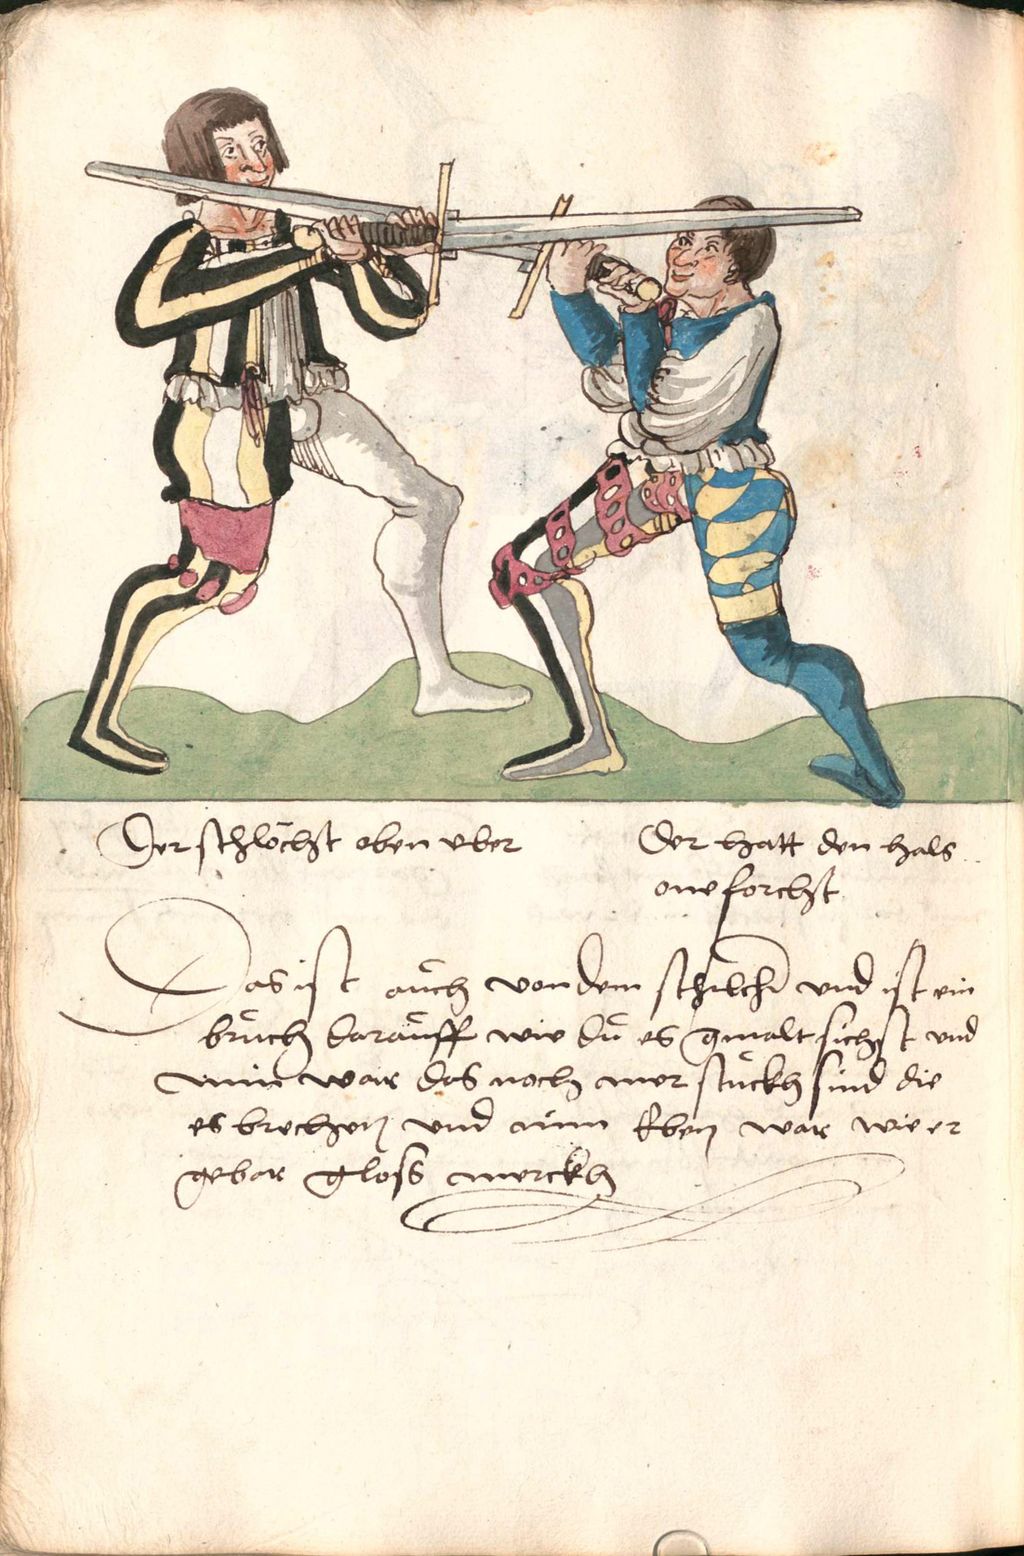 Der schlöchst oben uber
Der hatt den hals
one forchst
Das ist aüch von dem schilch und ist ein
brüch daraüff wie dü es gmalt sichst und
nim war das noch mer stückh sind die
es brechen und nim Eben war wie er
gebar gloss merckh